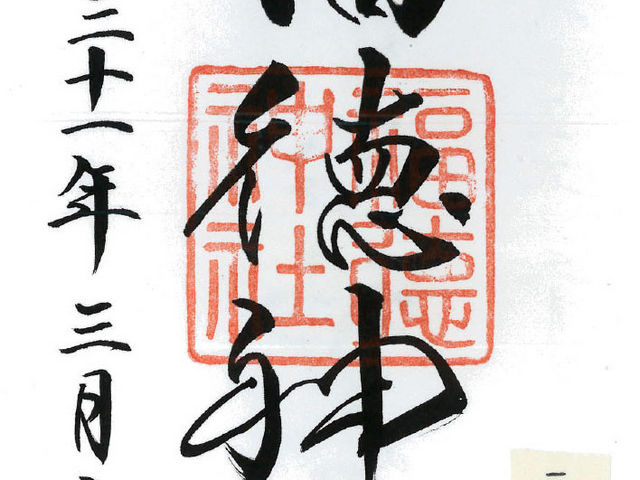 徳神
三十一年三月
福徳
神社